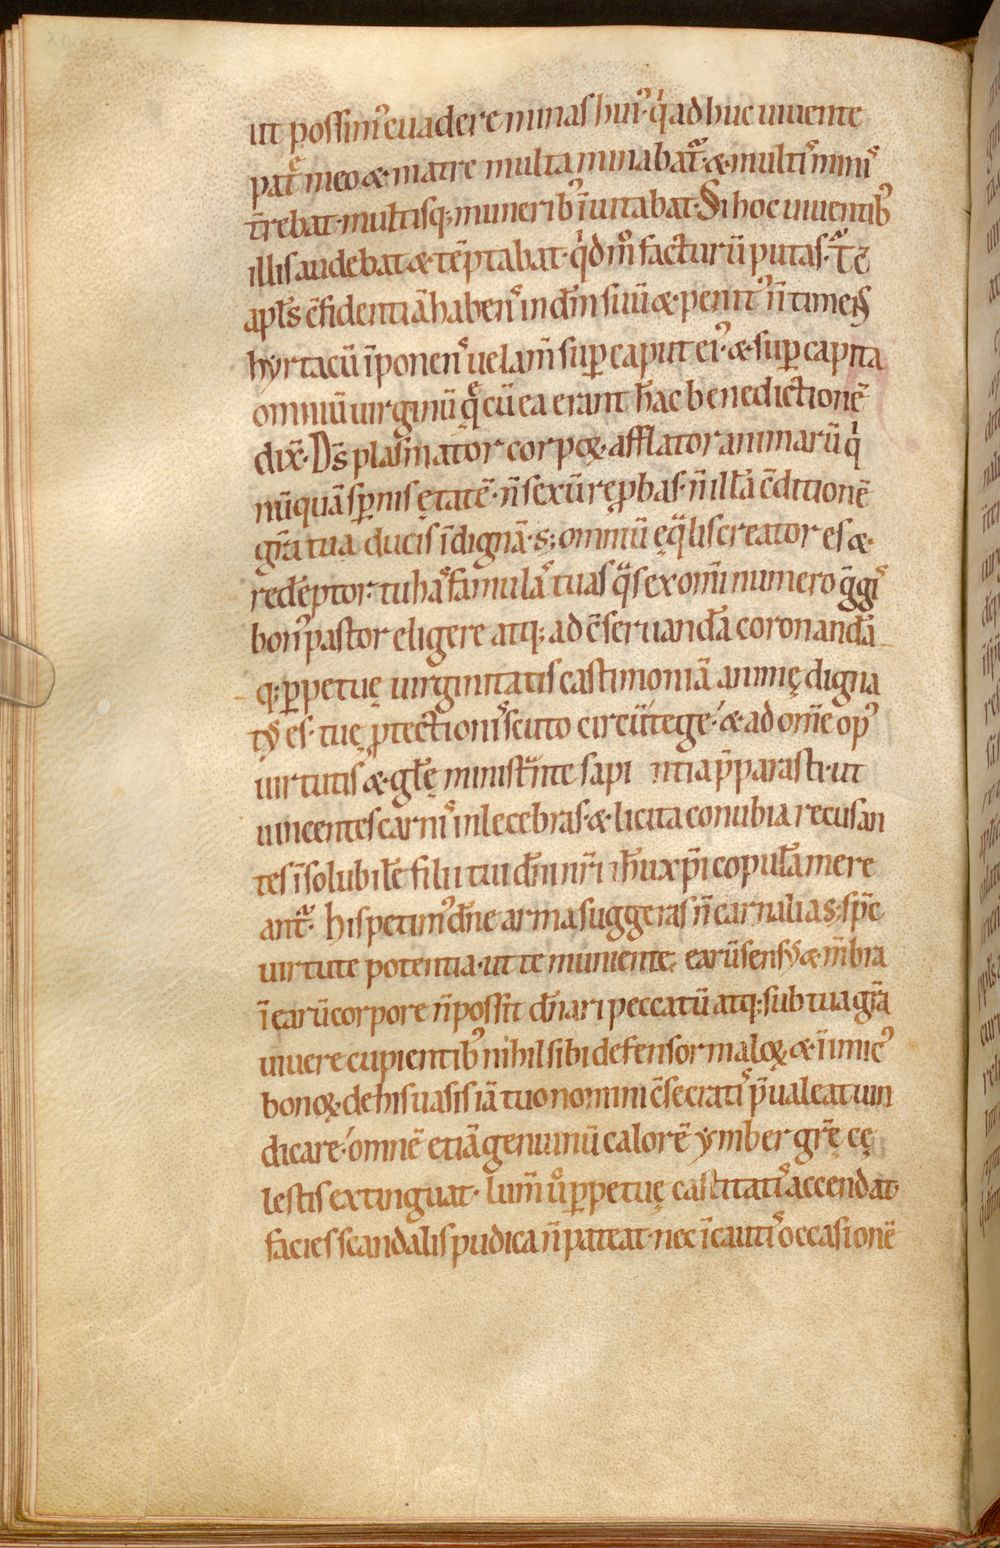 ut possim᷒ euadere minas hui᷒· qͥ adhuc uiuente
pat̃ meo &· matre multa minabat᷑· &· multis᷒ minis᷒
t̄rebat· multisq; munerib᷒ īuitabat· Si hoc uiuentib᷒
illis audebat &· tēptabat· qͥd m̊ facturū putas· T᷑c̄
apl̄s c̄fidentiā habens᷒ in dn̄m suū &· penit᷒ n̄ timens
hyrtacū īponens᷒ uelam̄ sup̄ caput ei᷒· &· sup̄ capita
omniū uirginū q̄ cū ea erant hāc benedictionē
dix̄· D̄s plasmator corpoꝝ· afflator animarū qͥ
nūquā sp̄nis ętatē· n̄ sexū rep̄bas· n̄ illā c̄ditionē
grā tua ducis īdignā· s; omniū ęqͣlis creator es &·
redēptor· tu has᷒ famulas᷒ tuas qͣs ex omī numero gͣgis᷒
bon᷒ pastor eligere atq; ad c̄seruandā coronandā
q; ꝑpetuę uirginitatis castimoniā animę digna
t᷒ es· tuę ꝓtectionis᷒ scuto circūtege· &· ad om̄e op᷒
uirtutis &· gl̄ę ministͣnte sapi ntia p̄parasti· ut
uincentes carnis᷒ inlecebras· &· licita conubia recusan
tes īsolubilē filii tui dn̄i nr̄i ih̄u xp̄i copulā mere
ant᷑· his petim᷒ dn̄e arma suggeras n̄ carnalia s; sp̄c
uirtute potentia· ut te muniente· earū sens᷒ &· m̄bra
ī earū corpore n̄ possit dn̄ari peccatū atq; sub tua grā
uiuere cupientib᷒ nihil sibi defensor maloꝝ &· inimic᷒
bonoꝝ· de his uasis iā tuo nomini c̄secratis᷒ p̄ualeat uin
dicare· omnē etiā genuinū calorē ymber gr̄ę cę
lestis extinguat· lum̄ ů ꝑpetuę castitatis᷒ accendat·
facies scandalis pudica n̄ pateat· nec īcautis᷒ occasionē